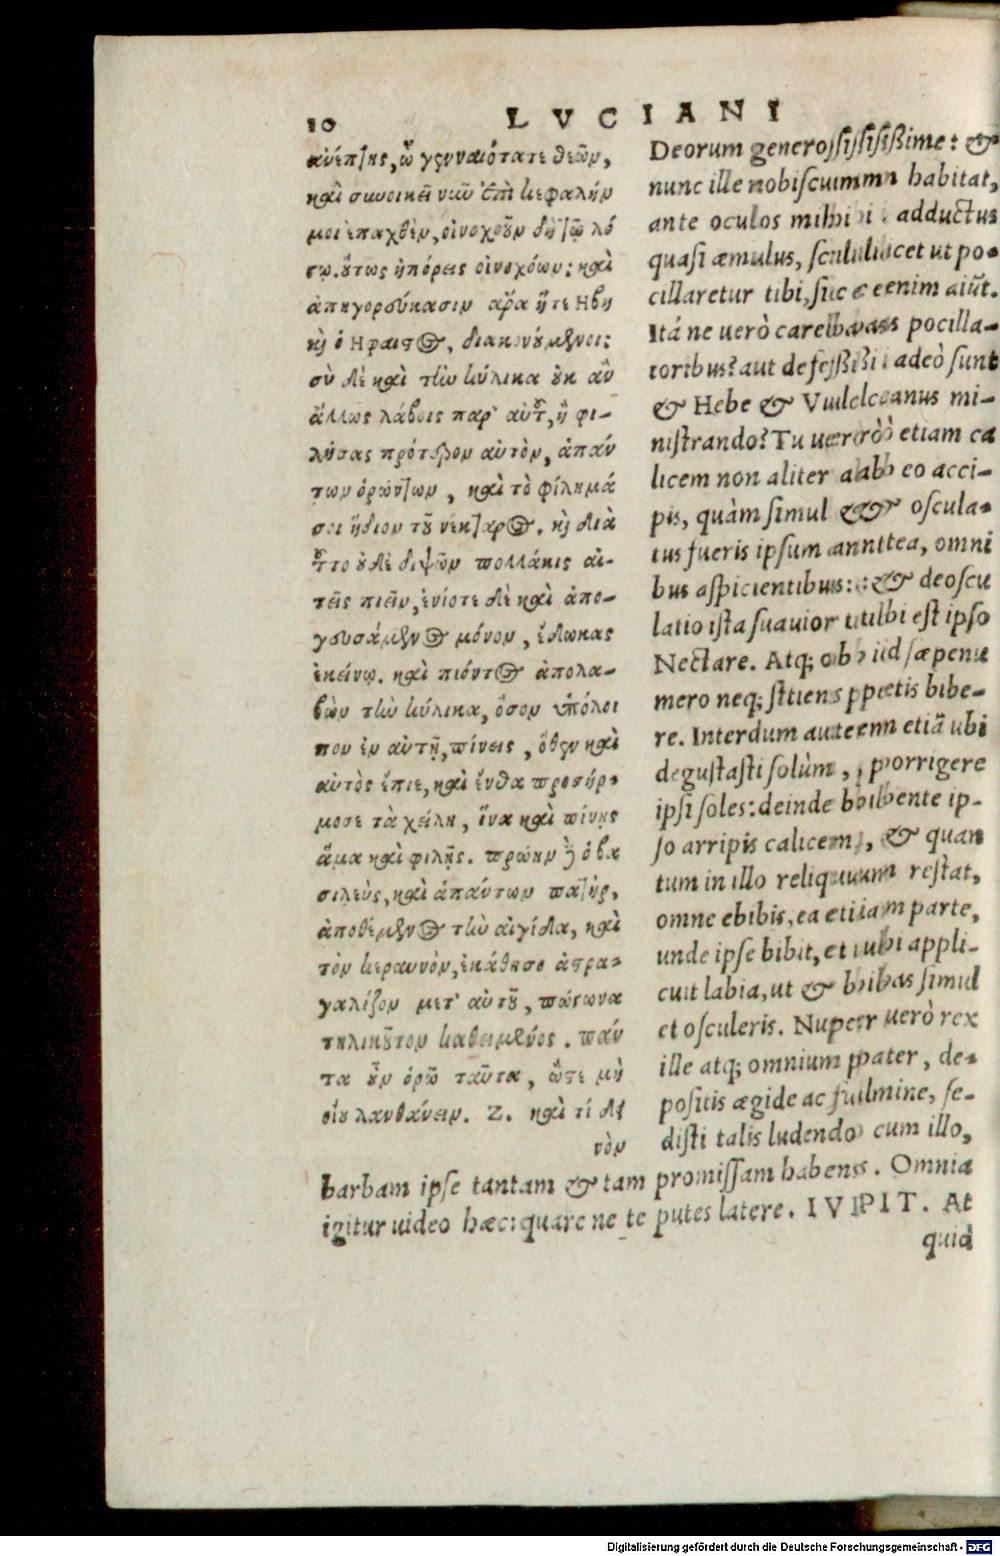 10 LVCIANI
ἀνέπτης, ὦ γενναιότατε θεῶν,
καὶ συνοικεῖ νῦν ἐπὶ κεφαλήν
μοι ἐπαχθὲν, οἰνοχοοῦν δὴ τῷ λό
γῳ. οὕτως ἠπόρεις οἰνοχόων; καὶ
ἀπηγορεύκασιν ἄρα ἥτε Ηβη
κỳ ὁ Ηφαιστος, διακονούμενοι;
σὺ δὲ καὶ τὴν κύλικα οὐκ ἂν
ἄλλως λάβοις παρ' αὐτοῦ, ἢ φι-
λήσας πρότερον αὐτὸν, ἁπάν
των ὁρώντων, καὶ τὸ φίλημά
σοι ἥδιον τοῦ νέκταρος. κỳ διὰ
τοῦτο οὐδὲ διψῶν πολλάκις αἰ-
τεῖς πιεῖν, ἐνίοτε δὲ καὶ ἀπο-
γευσάμενος μόνον, ἔδωκας
ἐκείνῳ. καὶ πιόντος ἀπολα-
βὼν τὴν κύλικα, ὅσον ὑπόλοι
πον ἐν αὐτῇ, πίνεις, ὅθεν καὶ
αὐτὸς ἔπιε, καὶ ἔνθα προσήρ-
μοσε τὰ χείλη, ἵνα καὶ πίνῃς
ἅμα καὶ φιλῇς. πρώην δὲ ὁ βα
σιλεὺς, καὶ ἁπάντων πατὴρ,
ἀποθέμενος τὴν αἰγίδα, καὶ
τὸν κεραυνὸν, ἐκάθησο ἀστρα-
γαλίζον μετ' αὐτοῦ, πώγωνα
τηλικοῦτον καθειμένος. πάν
τα οὖν ὁρῶ ταῦτα, ὥστε μὴ
οἴου λανθάνειν. Ζ. καὶ τί δει
νὸν
Deorum generosissisisißime: &
nunc ille nobiscum habitat,
ante oculos mihi adductus
quasi æmulus, scilicet ut po-
cillaretur tibi, sic enim aiūt.
Itá ne uerò carebas pocilla-
toribus? aut defeßi adeò sunt
& Hebe & Vulcanus mi-
nistrando? Tu uerò etiam ca
licem non aliter ab eo acci-
pis, quàm simul & oscula-
tus fueris ipsum anttea, omni
bus aspicientibus: & deoscu
latio ista suauior tibi est ipso
Nectare. Atq; ob id sæpenu
mero neq; sitiens petis bibe-
re. Interdum autem etiā ubi
degustasti solùm, porrigere
ipsi soles: deinde bibente ip-
so arripis calicem, & quan
tum in illo reliquum restat,
omne ebibis, ea etiam parte,
unde ipse bibit, et ubi appli-
cuit labia, ut & bibas simul
et osculeris. Nuper uerò rex
ille atq; omnium pater, de-
positis ægide ac fulmine, se-
disti talis ludendo cum illo,
barbam ipse tantam & tam promissam habens. Omnia
igitur uideo hæc: quare ne te putes latere. IVPIT. At
quid
Digitalisierung gefördert durch die Deutsche Forschungsgemeinschaft - DFG